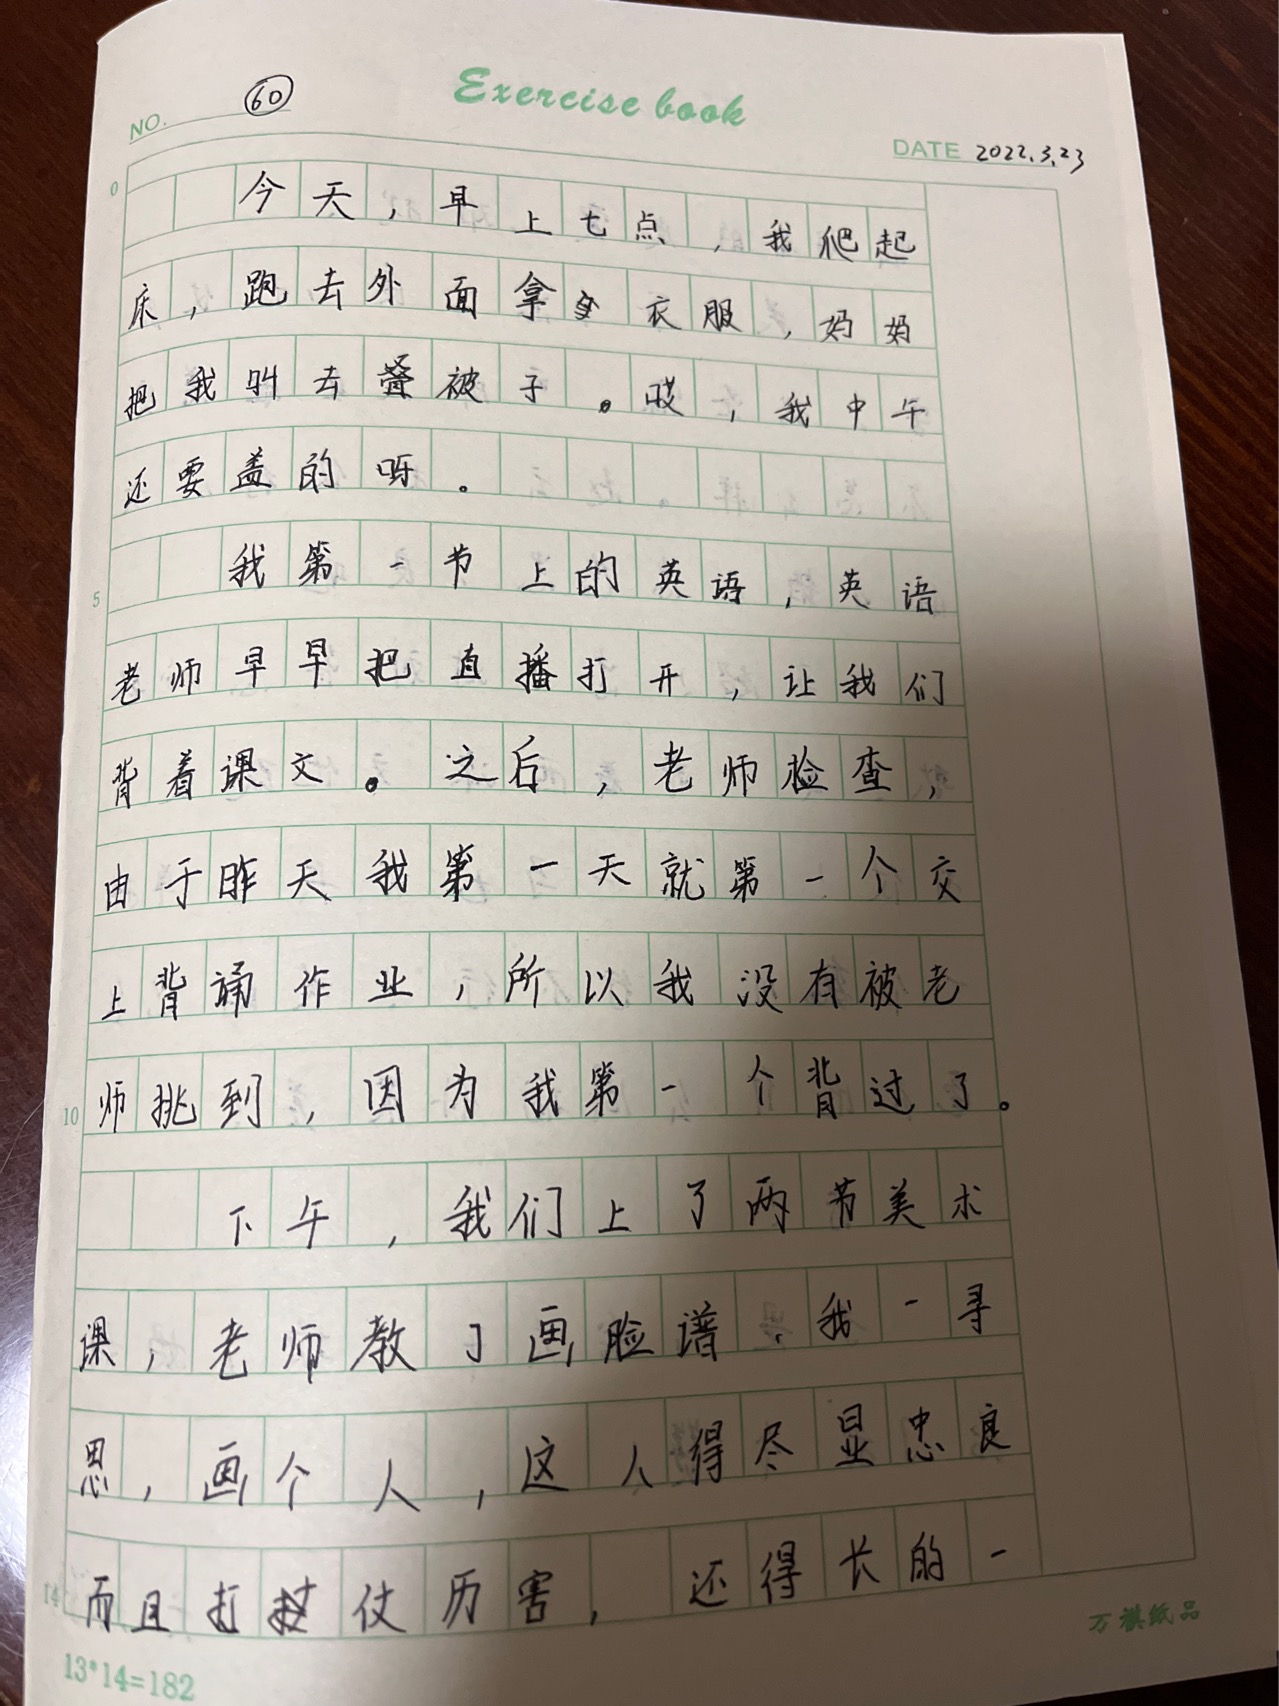 Exercise book
NO. 60
DATE 2022.3.23
0
今天，早上七点，我爬起
床，跑去外面拿衣服，妈妈
把我叫去叠被子。哎，我中午
还要盖的呀。
我第一节上的英语，英语
5
老师早早把直播打开，让我们
背着课文。之后，老师检查，
由于昨天我第一天就第一个交
上背诵作业，所以我没有被老
师挑到，因为我第一个背过了。
10
下午，我们上了两节美术
课，老师教了画脸谱，我一寻
思，画个人，这人得尽显忠良
而且打仗历害，还得长的一
14
万祺纸品
13*14=182